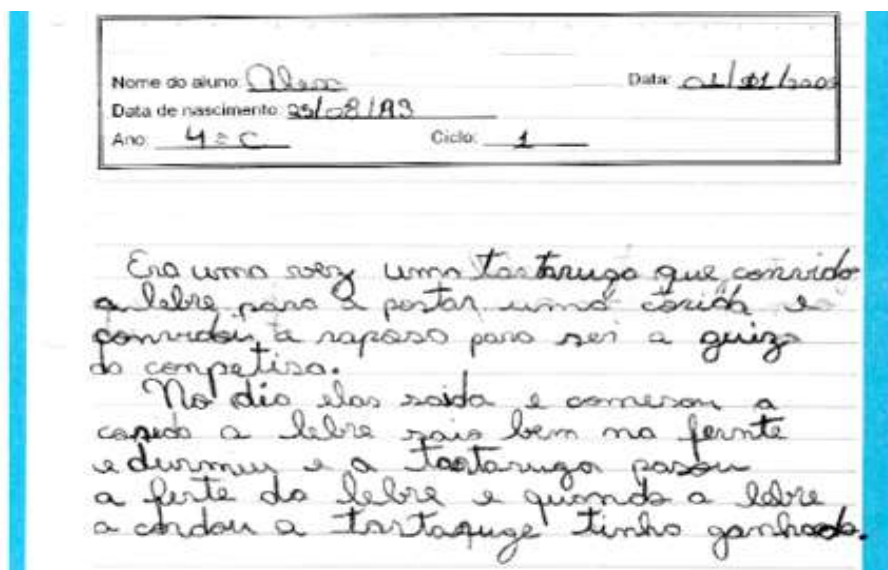 Nome do aluno: Alex Data: 01/01/2003
Data de nascimento: 25/08/93
Ano: 4ª C Ciclo: 1
Era uma vez uma tartaruga que convido
a lebre para a postar uma corida e
convidou a raposo para sei a guiz
da competisa.
No dia elas saida e comesou a
corida a lebre saio bem na fernte
e durmiu e a tartaruga pasou
a ferte da lebre e quando a lebre
a cordou a tartaruge tinha ganhado.